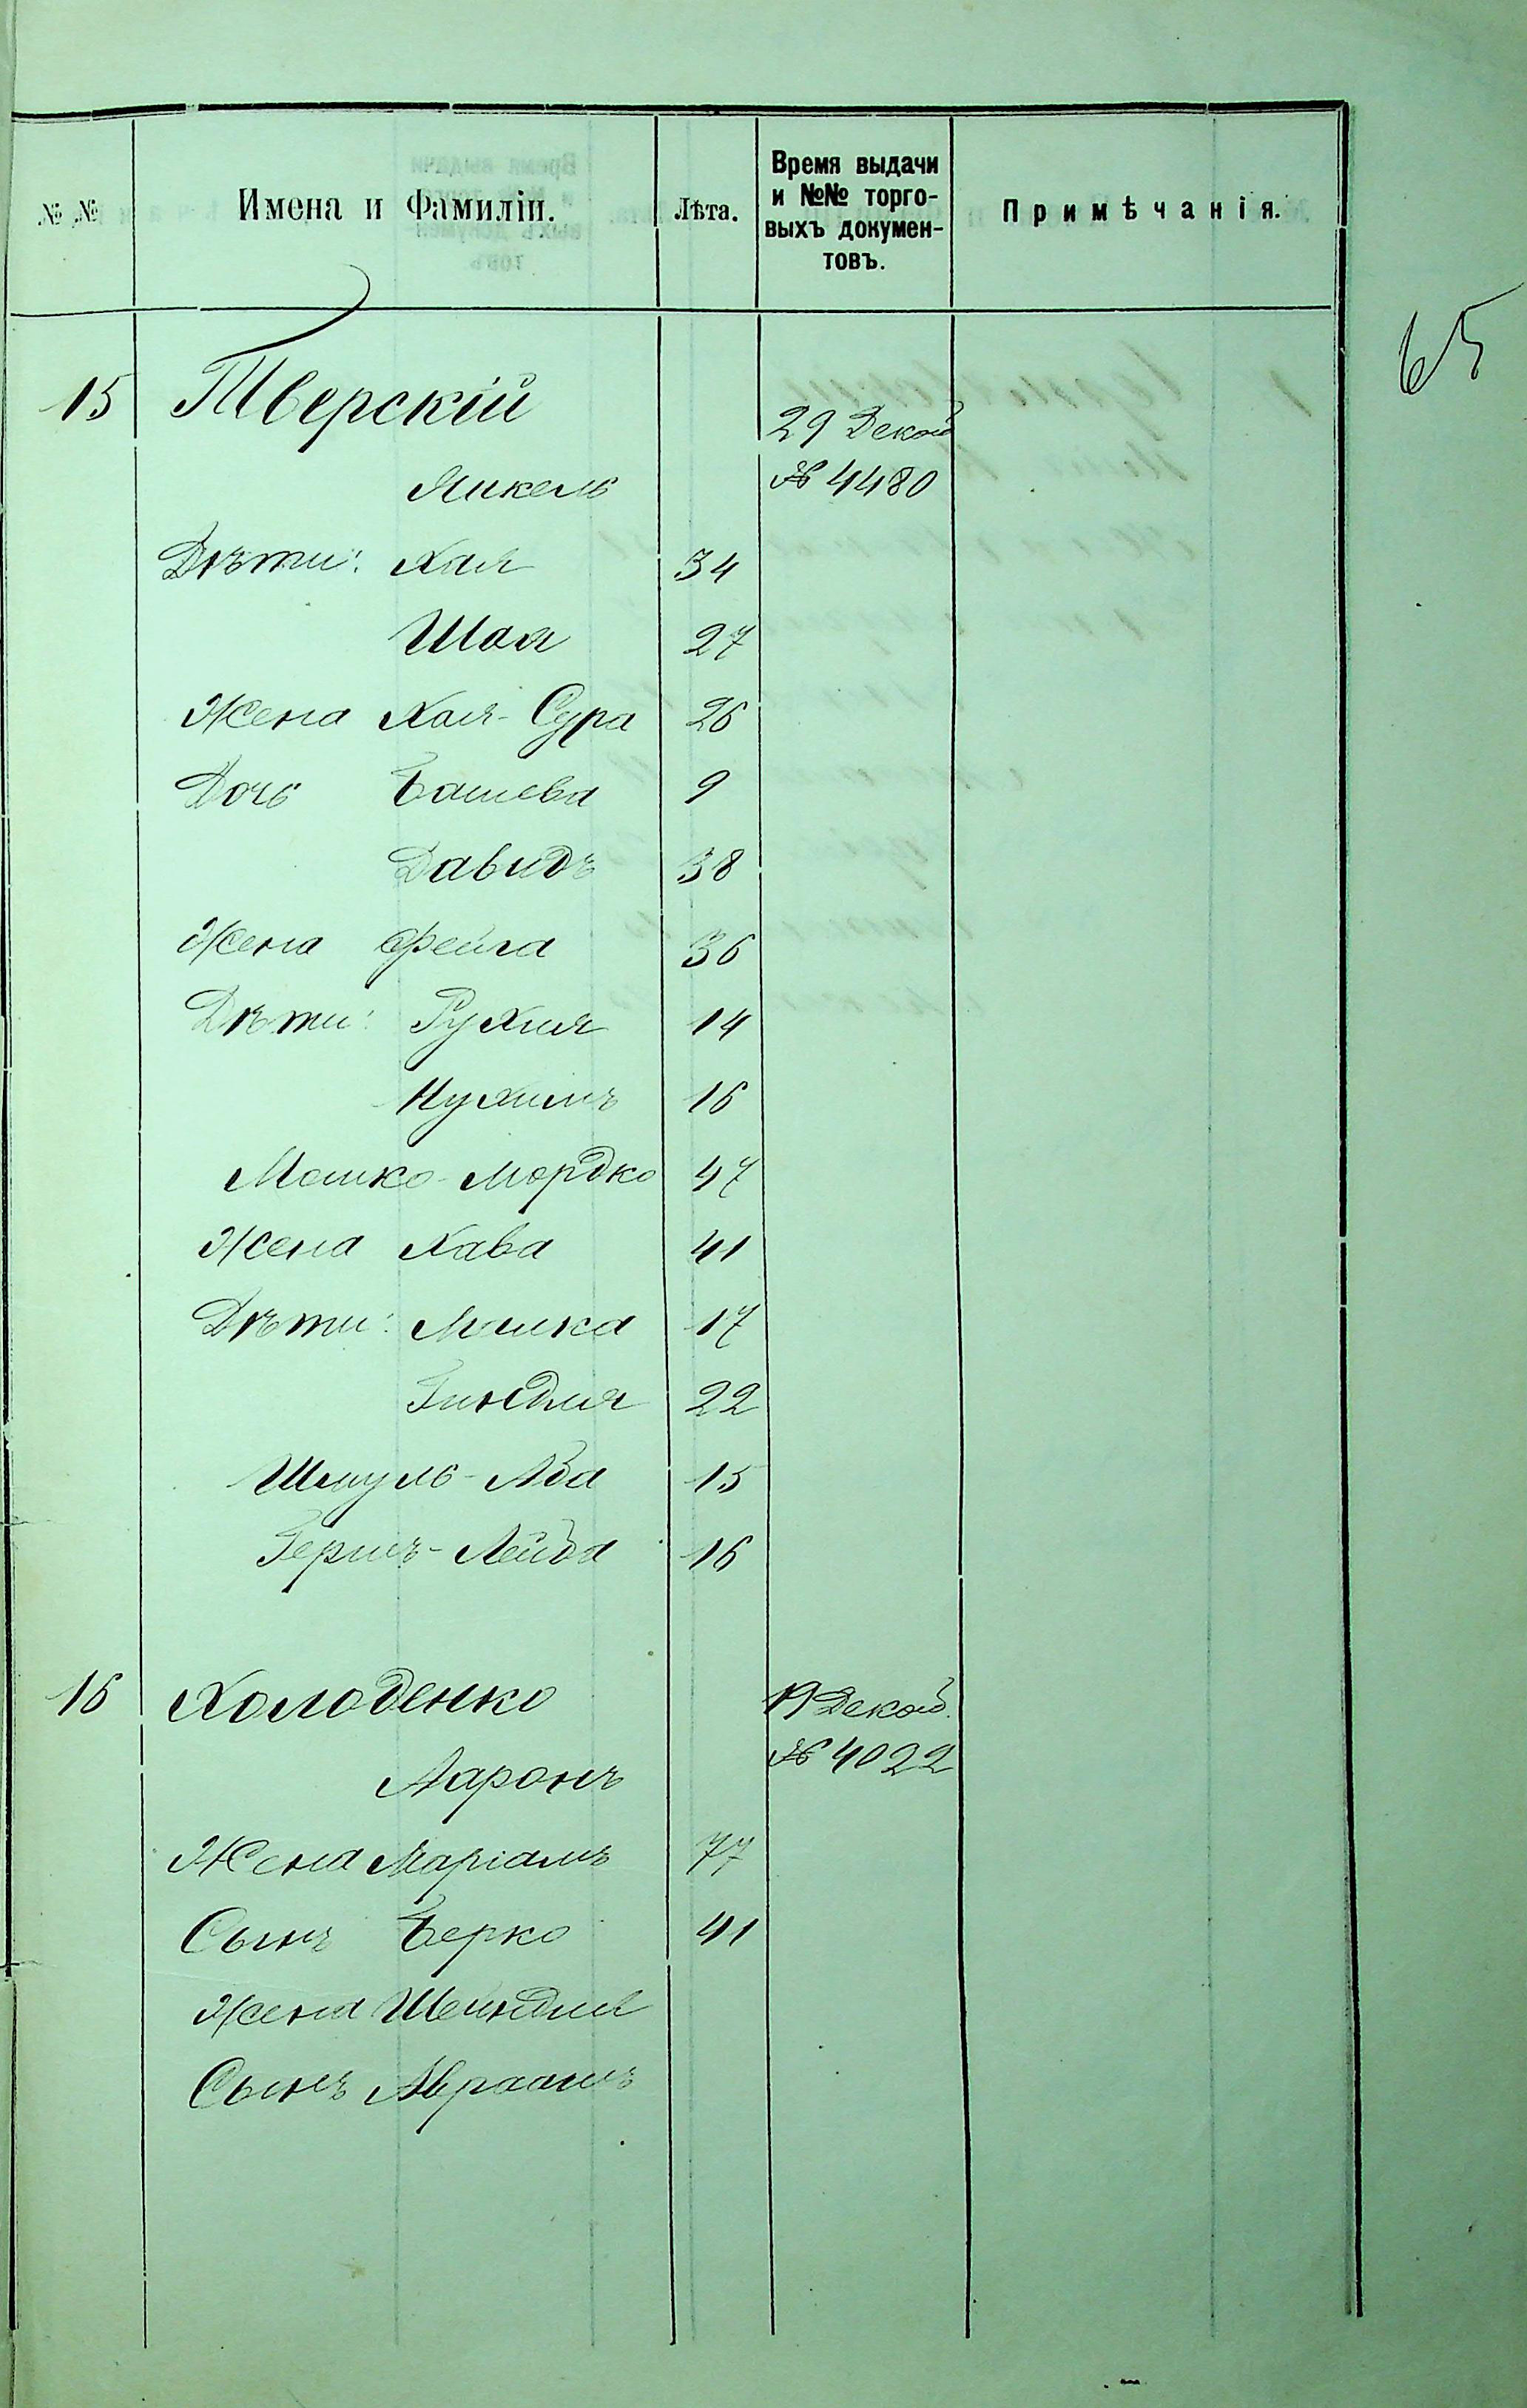 № №
Имена и Фамиліи.
Лѣта.
Время выдачи
и №№ торго-
выхъ докумен-
товъ.
Примѣчанія.
65
15 Тверскій
29 Декаб
Янкель № 4480
Дѣти: Хая 34
Шая 27
Жена Хая-Сура 26
Дочь Башева 9
Давидъ 38
Жена Фейга 36
Дѣти: Рухля 14
Нухимъ 16
Мошко-Мордко 47
Жена Хава 41
Дѣти: 17
Гиндля 22
Шмуль-Аба 15
Гершъ-Лейба 16
16 Холоденко 19 Декаб.
№ 4022
Ааронъ
Жена Маріамъ 77
Сынъ Берко 41
Жена Шейндля
Сынъ Авраамъ